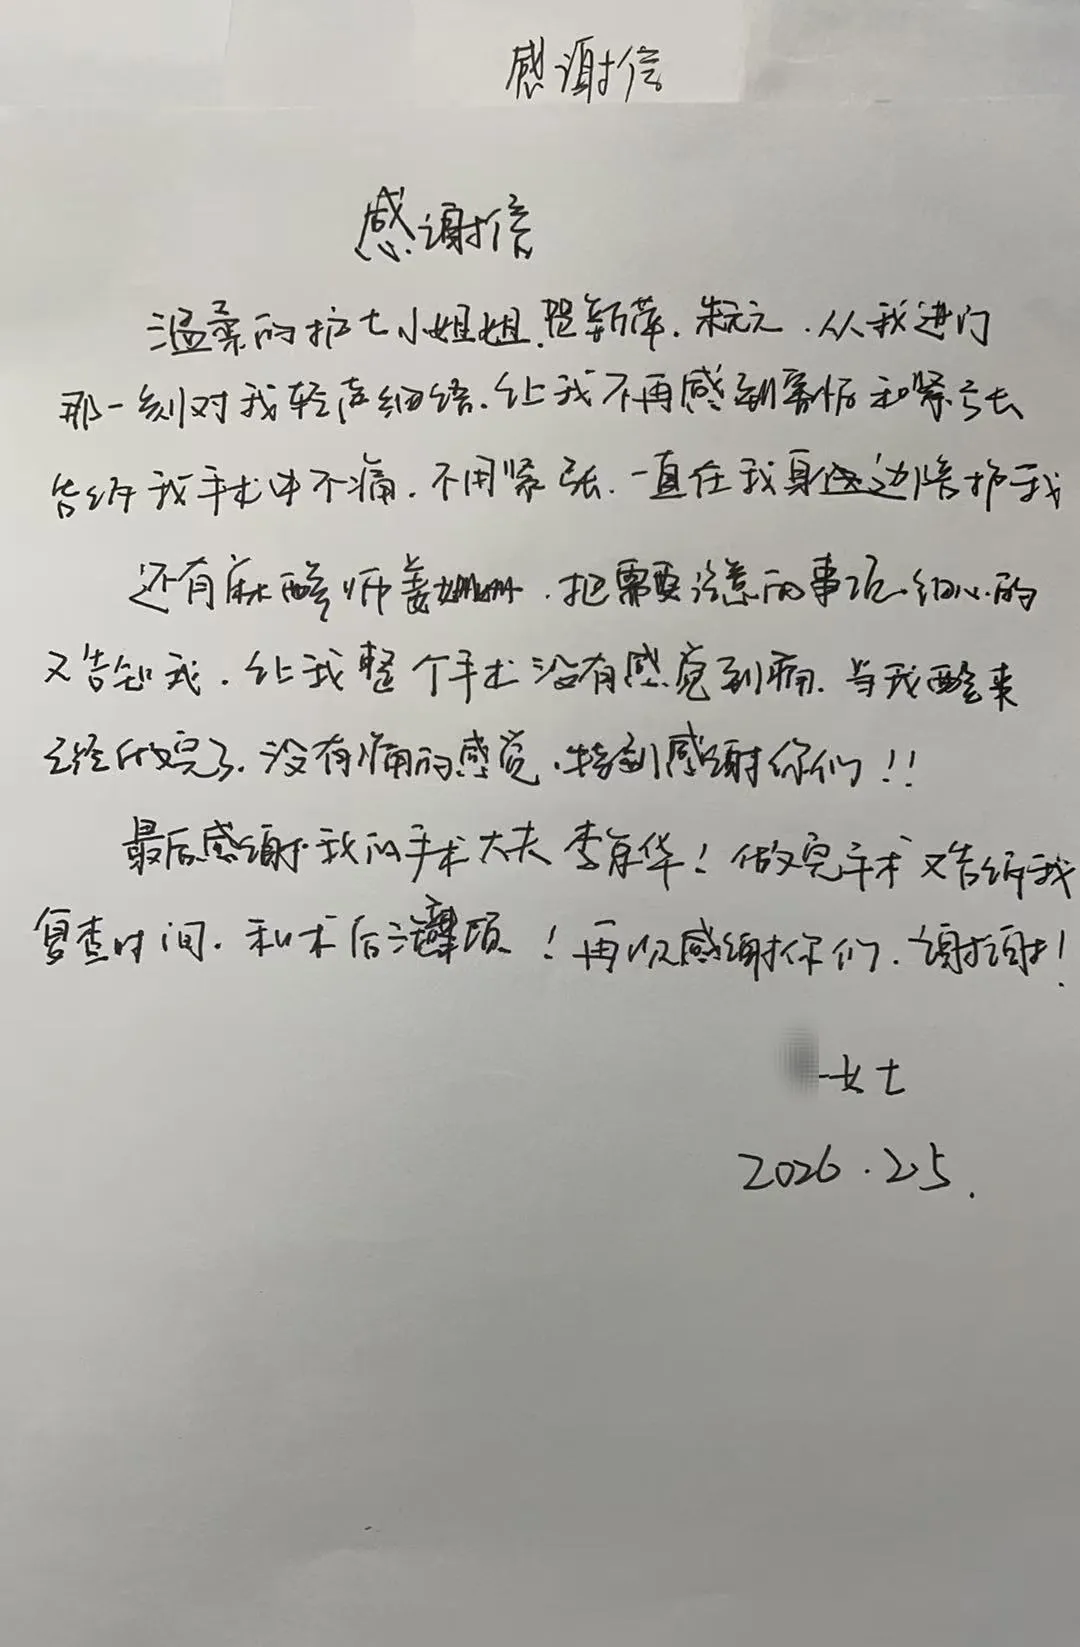 感谢信
感谢信
温柔的护士小姐姐.新萍.朱元元.从我进门
那一刻对我轻声细语.让我不再感到害怕和紧张
告诉我手术中不痛.不用紧张.一直在我身边陪护我
还有麻醉师姜姗姗.把需要注意的事项.细心的
又告知我.让我整个手术没有感觉到痛.当我醒来
已经做完了.没有痛的感觉.特别感谢你们!!
最后感谢我的手术大夫李华!做完手术又告诉我
复查时间.和术后注意事项!再次感谢你们.谢谢!
女士
2026.2.5.